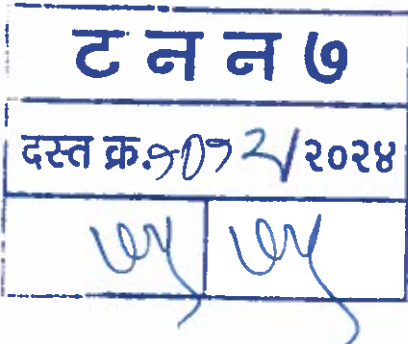 ट न न ७
दस्त क्र.१०१२/२०२४
७५ ७५